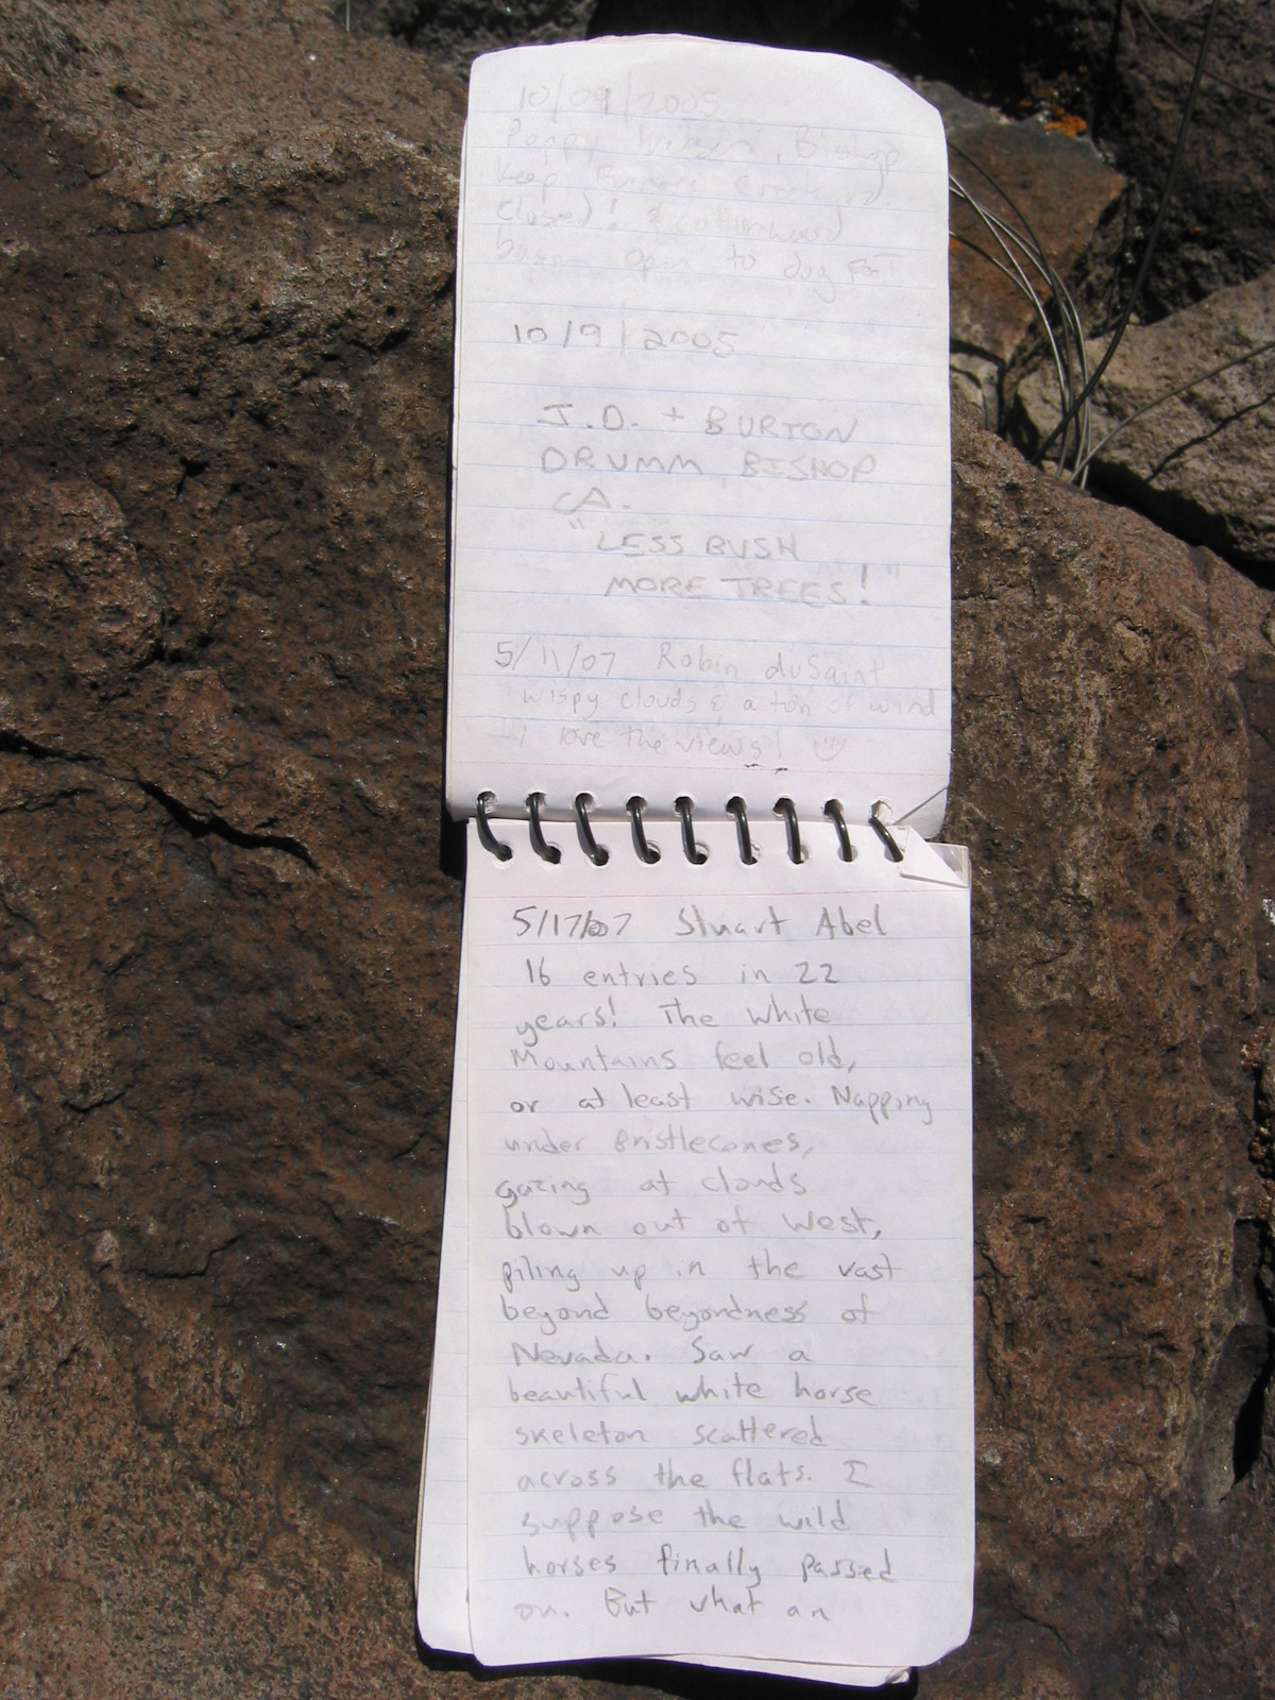 10/09/2005
Poppy, Bishop
Keep Furnace Creek rd.
closed! & cottonwood
basin open to dog
10/9/2005
J.D. + BURTON
DRUMM BISHOP
CA.
"LESS BUSH
MORE TREES!"
5/11/07 Robin duSaint
wispy clouds & a ton of wind
I love the views!
5/17/07 Stuart Abel
16 entries in 22
years! The White
Mountains feel old,
or at least wise. Napping
under Bristlecones,
gazing at clouds
blown out of West,
piling up in the vast
beyond beyondness of
Nevada. Saw a
beautiful white horse
skeleton scattered
across the flats. I
suppose the wild
horses finally passed
on. But what an